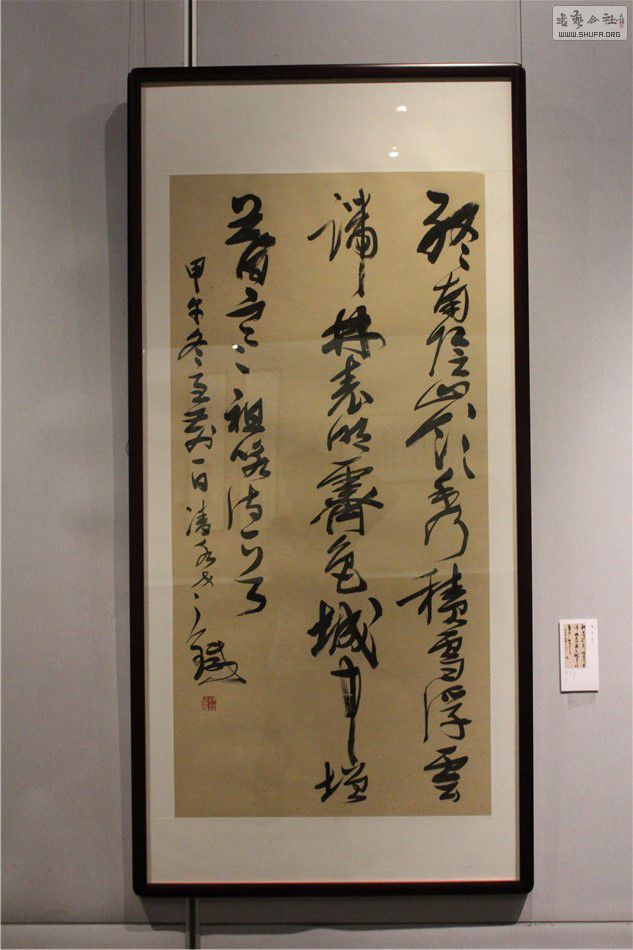 終南陰嶺秀積雪浮雲
端林表明霽色城中增
暮寒 祖咏詩一首
甲午冬至前一日
書藝公社
WWW.SHUFA.ORG